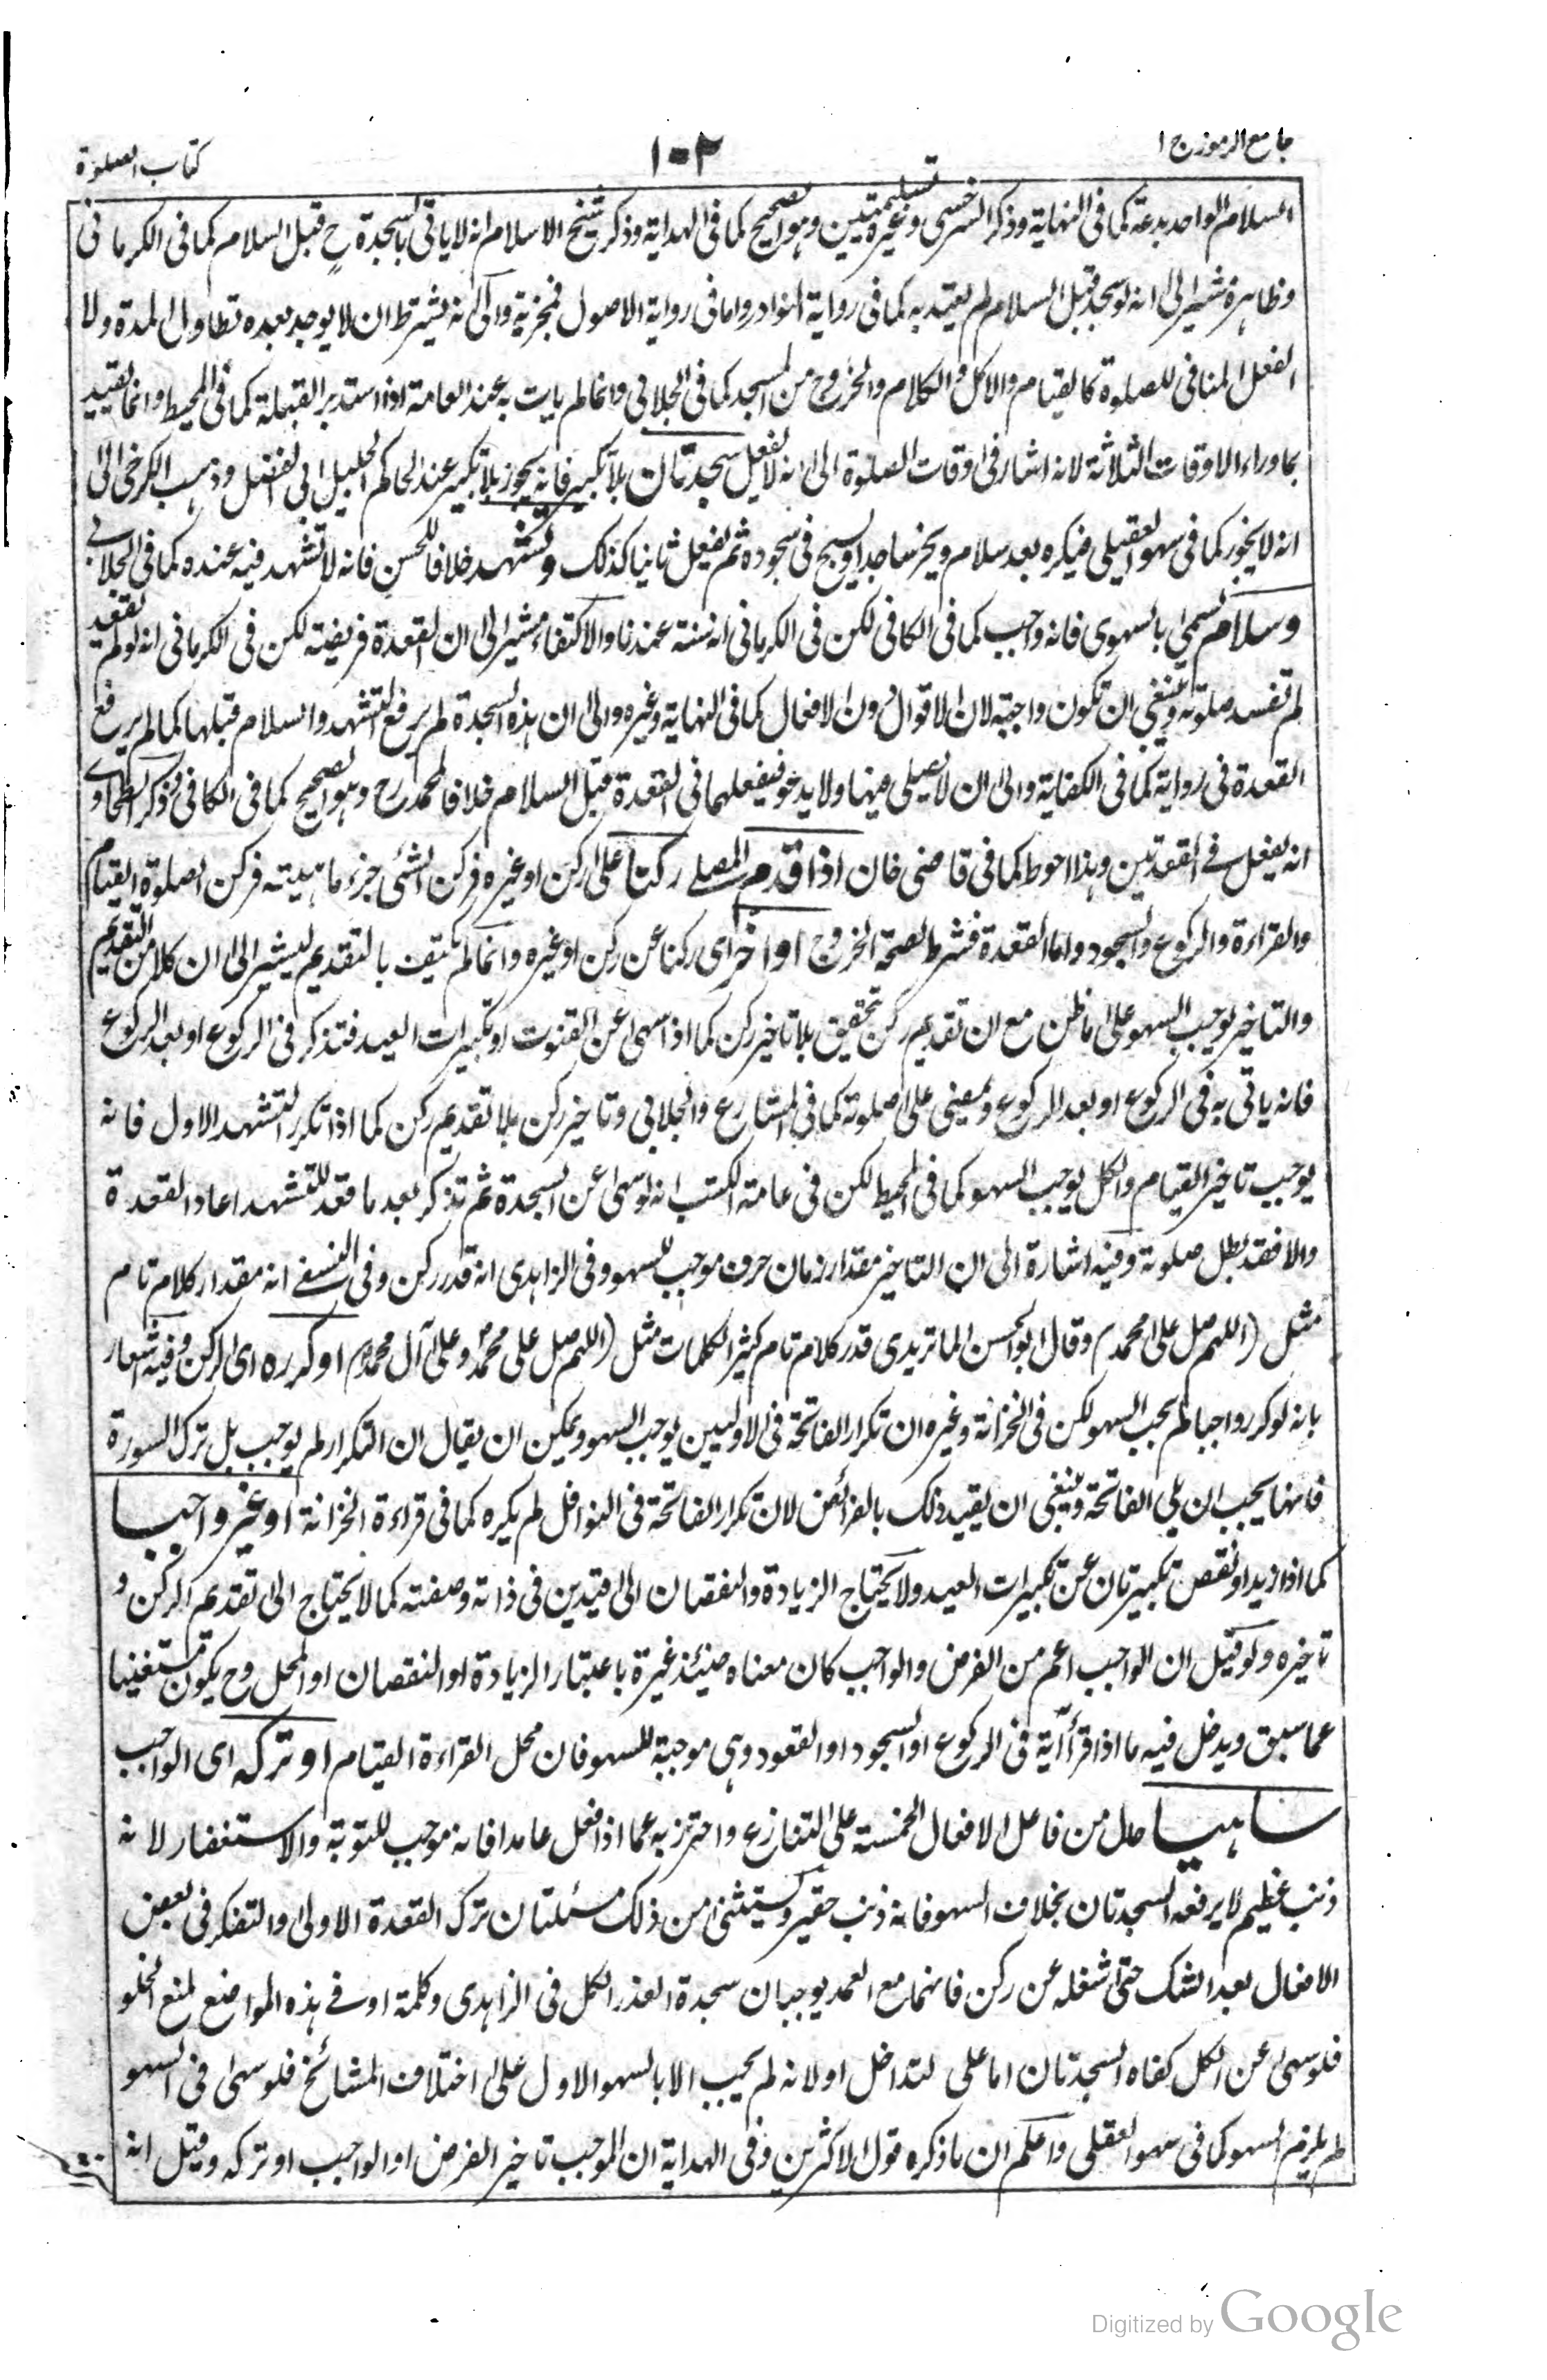 جامع الرموز ج ا
١٠٢
كتاب الصلوة
السلام الواحد بدعة كما فى النهاية وذكر السرخسى وغيره تسليمتين وهو الصحيح كما فى الهداية وذكر شيخ الاسلام انه لا ياتى بالسجدة ح قبل السلام كما فى الكرمانى
وظاهره مشير الى انه لو سجد قبل السلام لم يعتد به كما فى رواية النوادر واما فى رواية الاصول فمجزية والى انه يشترط ان لا يوجد بعده تطاول المدة ولا
الفعل المنافى للصلوة كالقيام والاكل والكلام والخروج من المسجد كما فى الجلابى وانما لم يات به عند العامة اذا استدبر القبلة كما فى المحيط وانما لم يقيد
بما وراء الاوقات الثلاثة لانه اشار فى اوقات الصلوة الى انه لا يفعل سجدتان بلا تكبير فانه يجوز بلا تكبير عند الحاكم الجليل ابى الفضل وذهب الكرخى الى
انه لا يجوز كما فى سهو العقيلى فيكره بعد سلام ويخر ساجدا ويسبح فى سجوده ثم يفعل ثانيا كذلك وتشهد خلافا للحسن فانه لا تشهد فيه عنده كما فى الجلابى
وسلام سمى بالسهوى فانه واجب كما فى الكافى لكن فى الكرمانى انه سنة عندنا والاكتفاء مشير الى ان القعدة فريضة لكن فى الكرمانى انه لو لم يقعد
لم تفسد صلوته وينبغى ان تكون واجبة لان الاقوال دون الافعال كما فى النهاية وغيره والى ان هذه السجدة لم يرفع التشهد والسلام قبلها كما لم يرفع
القعدة فى رواية كما فى الكفاية والى ان لا يصلى فيها ولا يدعو فيفعلهما فى القعدة قبل السلام خلافا لمحمد رح وهو الصحيح كما فى الكافى وذكر الطحاوى
انه يفعل فى القعدتين وهذا احوط كما فى قاضى خان اذا قدم المصلى ركنا على ركن او غيره فركن الشئ جزء ماهيته فركن الصلوة القيام
والقراءة والركوع والسجود واما القعدة فشرط لصحة الخروج او اخر اى ركنا عن ركن او غيره وانما لم يكتف بالتقديم ليشير الى ان كلا من التقديم
والتاخير يوجب السهو على ما ظن مع ان تقديم ركن تحقيق بلا تاخير ركن كما اذا سهى عن القنوت او تكبيرات العيد فتذكر فى الركوع او بعد الركوع
فانه ياتى به فى الركوع او بعد الركوع ويمضى على صلوته كما فى المشارع والجلابى وتاخير ركن بلا تقديم ركن كما اذا تكرر التشهد الاول فانه
يوجب تاخير القيام والكل يوجب السهو كما فى المحيط لكن فى عامة الكتب انه لو سهى عن السجدة ثم تذكر بعد ما قعد للتشهد اعاد القعدة
والا فقد بطل صلوته وفيه اشارة الى ان التاخير مقدار زمان حرف موجب للسهو وفى الزاهدى انه قدر ركن وفى النسفى انه مقدار كلام تام
مثل (اللهم صل على محمد) وقال ابو الحسن الماتريدى قدر كلام تام كثير الكلمات مثل (اللهم صل على محمد وعلى آل محمد) او كرره اى الركن وفيه اشعار
بانه لو كرر واجبا لم يجب السهو لكن فى الخزانة وغيره ان تكرار الفاتحة فى الاوليين يوجب السهو ويمكن ان يقال ان التكرار لم يوجب بل ترك السورة
فانها يجب ان يلى الفاتحة وينبغى ان يقيد ذلك بالفرائض لان تكرار الفاتحة فى النوافل لم يكره كما فى قراءة الخزانة او غير واجبا
كما اذا زيد او نقص تكبيرتان عن تكبيرات العيد ولا يحتاج الزيادة والنقصان الى قيدين فى ذاته وصفته كما لا يحتاج الى تقديم الركن و
تاخيره ولو قيل ان الواجب اعم من الفرض والواجب كان معناه حينئذ غيره باعتبار الزيادة او النقصان او المحل وح يكون مستغنيا
عما سبق ويدخل فيه ما اذا قرأ آية فى الركوع او السجود او القعود وهى موجبة للسهو فان محل القراءة القيام او تركه اى الواجب
ساهيا حال من فاعل الافعال الخمسة على التنازع واحترز به عما اذا فعل عامدا فانه موجب للتوبة والاستغفار لانه
ذنب عظيم لا يرفعه السجدتان بخلاف السهو فانه ذنب حقير ويستثنى من ذلك مسئلتان ترك القعدة الاولى والتفكر فى بعض
الافعال بعد الشك حتى اشغله عن ركن فانهما مع العمد يوجبان سجدة العذر الكل فى الزاهدى وكلمة او فى هذه المواضع لمنع الخلو
فلو سهى عن الكل كفاه السجدتان اما على التداخل او لانه لم يجب الا بالسهو الاول على اختلاف المشائخ فلو سهى فى السهو
لم يلزم السهو كما فى سهو العقلى واعلم ان ما ذكره قول الاكثرين وفى الهداية ان الموجب تاخير الفرض او الواجب او تركه وقيل انه
Digitized by Google